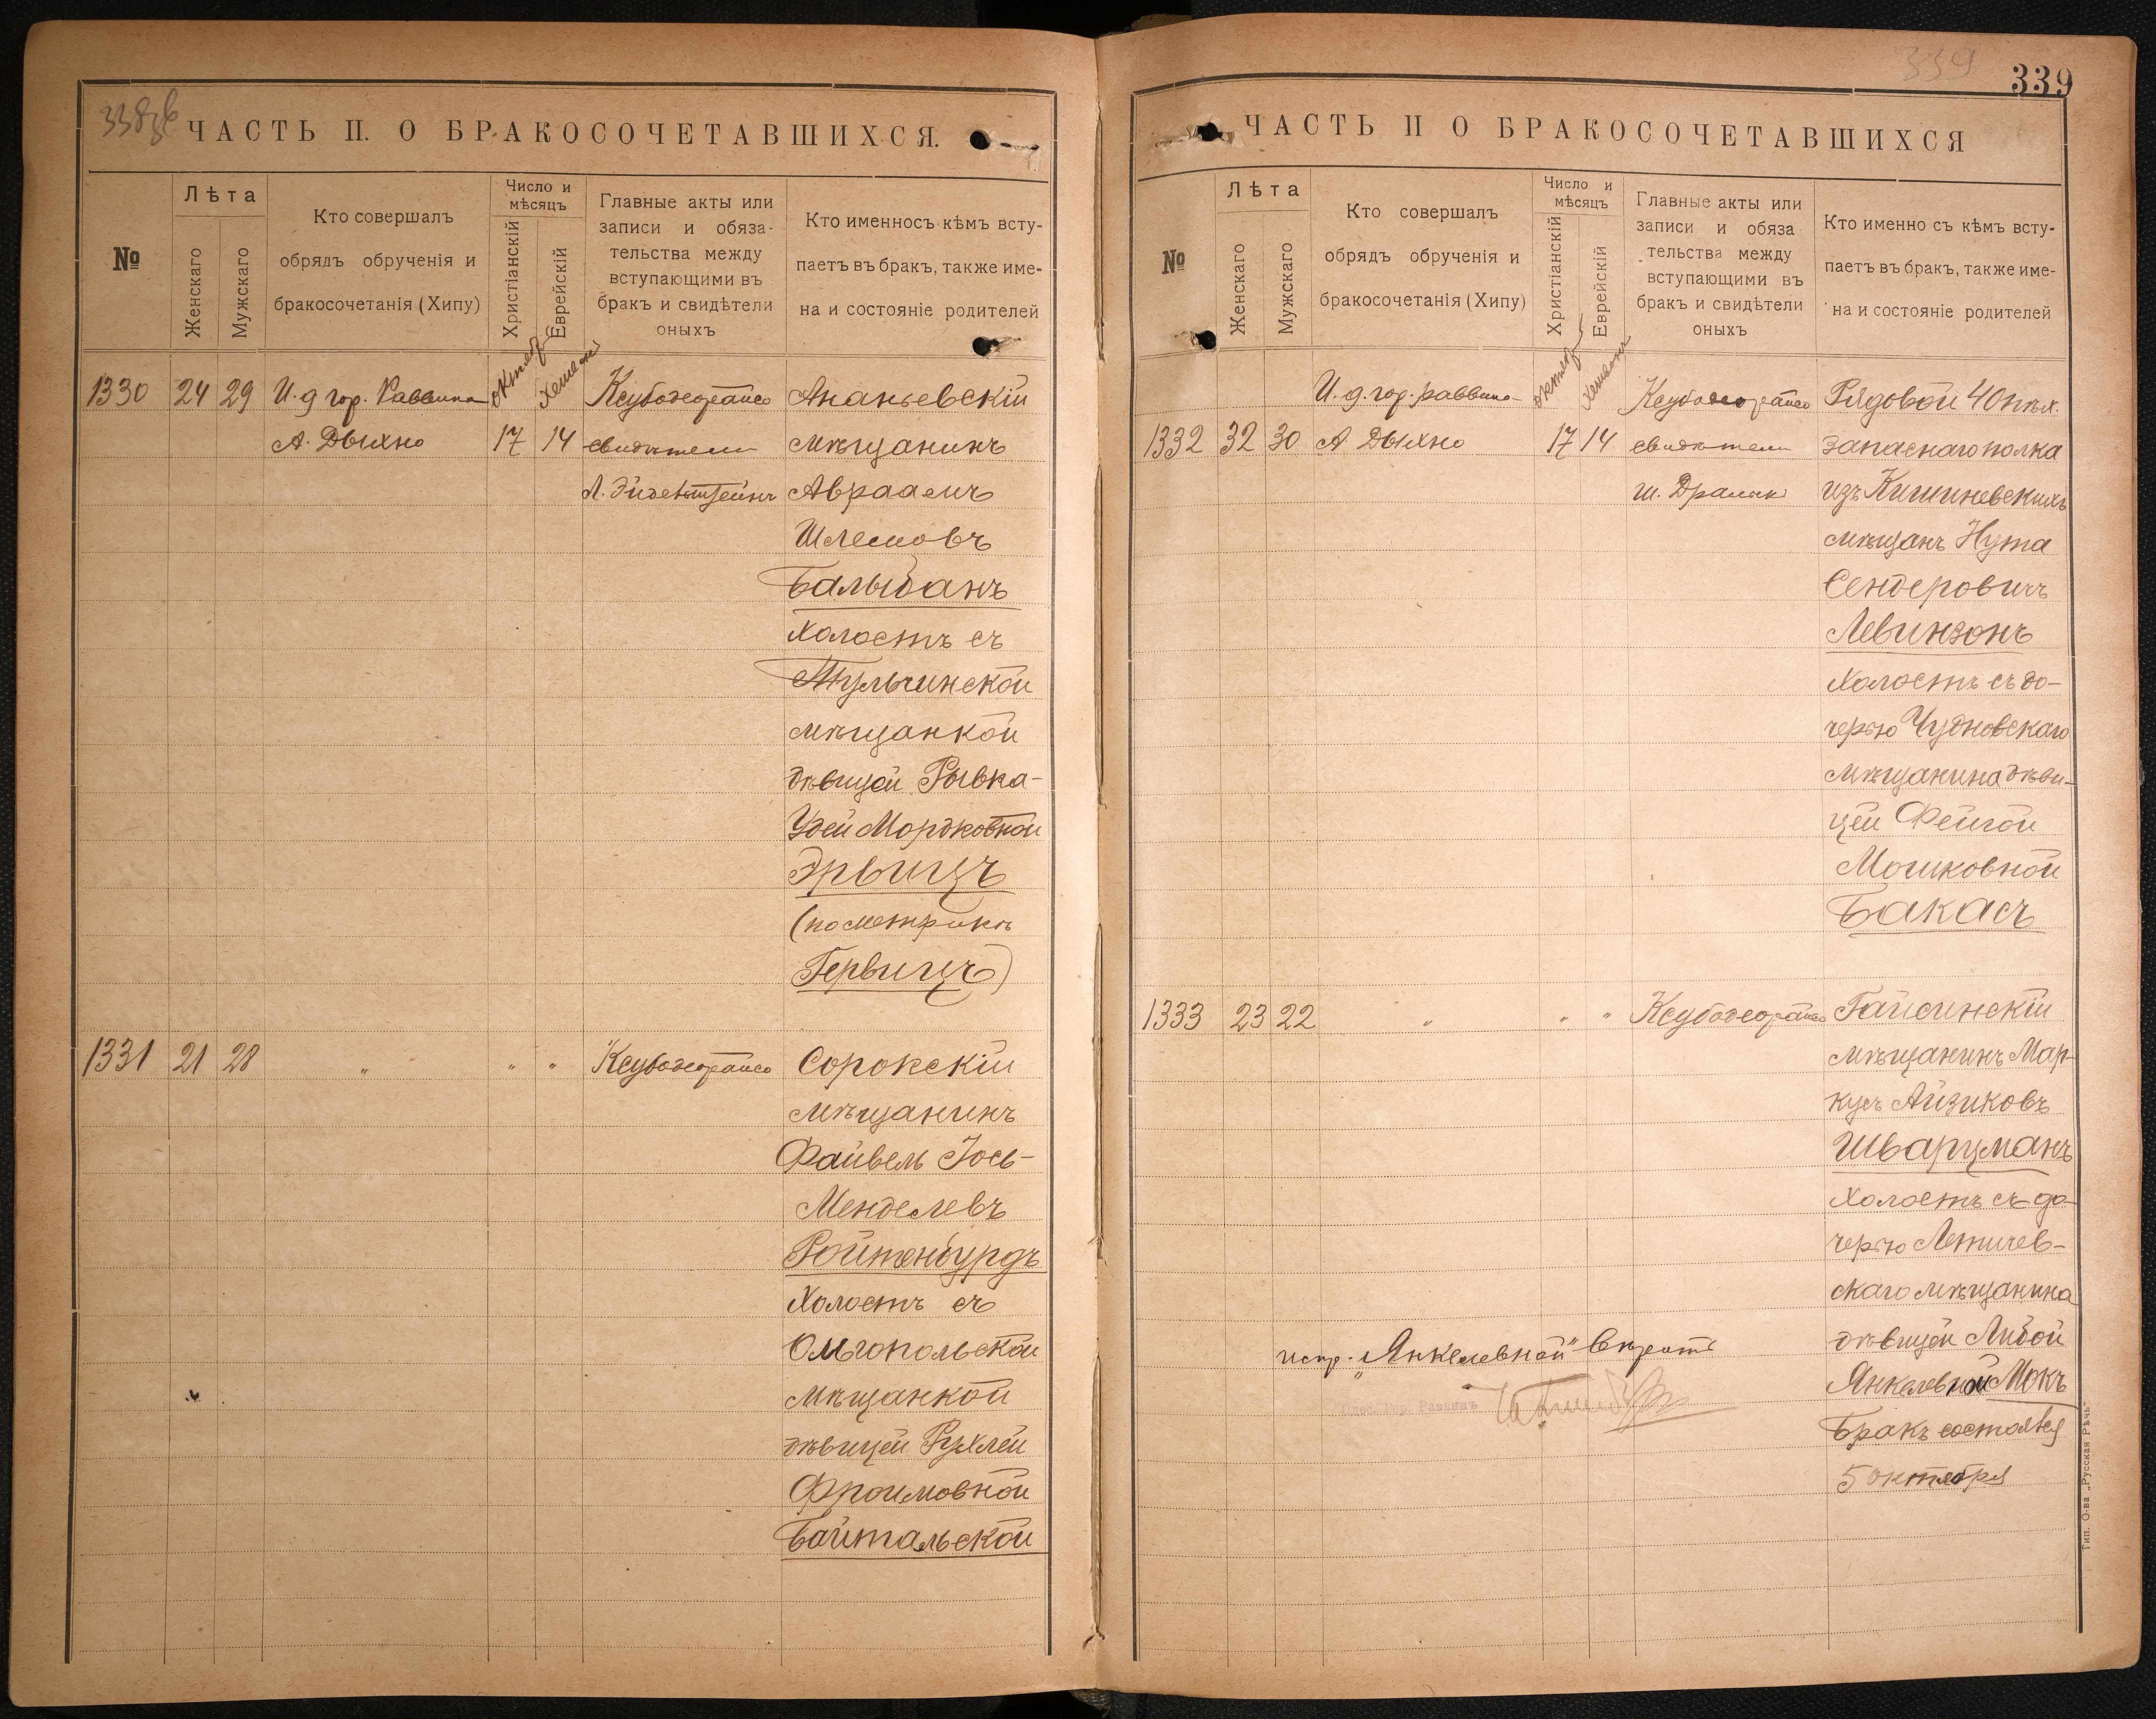 338об
ЧАСТЬ II. О БРАКОСОЧЕТАВШИХСЯ.
№
Лѣта
Женскаго
Мужскаго
Кто совершалъ
обрядъ обрученія и
бракосочетанія (Хипу)
Число и
мѣсяцъ
Христіанскій
Еврейскій
Главные акты или
записи и обяза-
тельства между
вступающими въ
бракъ и свидѣтели
оныхъ
Кто именносъ кѣмъ всту-
паетъ въ бракъ, также име-
на и состояніе родителей
1330 24 29 И. д гор. Раввина
А. Дыхно
17 14
свидѣтели
Ананьевскій
мѣщанинъ
Авраамъ
Шлемовъ
Балыбанъ
холостъ съ
Тульчинской
мѣщанкой
дѣвицей Рывка-
Удей Мордковной
Эрвицъ
(по метрикѣ
Гервицъ)
1331 21 28 " " "
Сорокскій
мѣщанинъ
Файвель Іось-
Менделевъ
Ройтенбурдъ
Холостъ съ
Ольгопольской
мѣщанкой
дѣвицей Рухлей
Фроимовной
Байтальской
339
339
ЧАСТЬ II О БРАКОСОЧЕТАВШИХСЯ
№
Лѣта
Женскаго
Мужскаго
Кто совершалъ
обрядъ обрученія и
бракосочетанія (Хипу)
Число и
мѣсяцъ
Христіанскій
Еврейскій
Главные акты или
записи и обяза
тельства между
вступающими въ
бракъ и свидѣтели
оныхъ
Кто именно съ кѣмъ всту-
паетъ въ бракъ, также име-
на и состояніе родителей
И. д. гор. раввина
1332 32 30 А Дыхно 17 14
свидѣтели
Рядовой 40 пѣх.
запаснаго полка
изъ Кишиневскихъ
мѣщанъ Нута
Сендеровичъ
Левинзонъ
Холостъ съ до-
черью Чудновскаго
мѣщанина дѣви-
цей Фейгой
Мошковной
Бакасъ
1333 23 22 " " "
Гайсинскій
мѣщанинъ Мар-
кусъ Айзиковъ
Шварцманъ
Холостъ съ до-
черью Летичев-
скаго мѣщанина
дѣвицей Либой
Янкелевной Мокъ
Бракъ состоялся
5 октября
испр. "Янкелевной"
Одес. Гор. Раввинъ
Тип. О-ва „Русская Рѣчь"